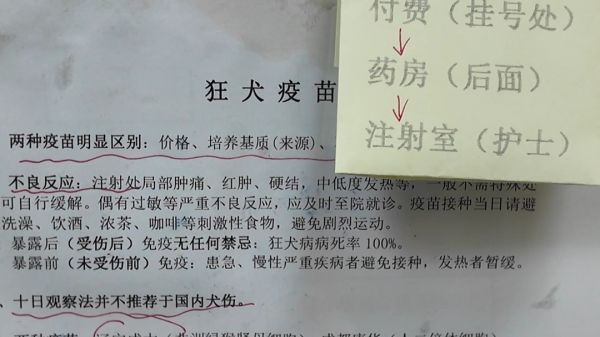 付费（挂号处）
药房（后面）
注射室（护士）
狂犬疫苗
两种疫苗明显区别：价格、培养基质(来源)、
不良反应：注射处局部肿痛、红肿、硬结，中低度发热等，一般不需特殊处
可自行缓解。偶有过敏等严重不良反应，应及时至院就诊。疫苗接种当日请避
洗澡、饮酒、浓茶、咖啡等刺激性食物，避免剧烈运动。
暴露后（受伤后）免疫无任何禁忌：狂犬病病死率 100%。
暴露前（未受伤前）免疫：患急、慢性严重疾病者避免接种，发热者暂缓。
、十日观察法并不推荐于国内犬伤。